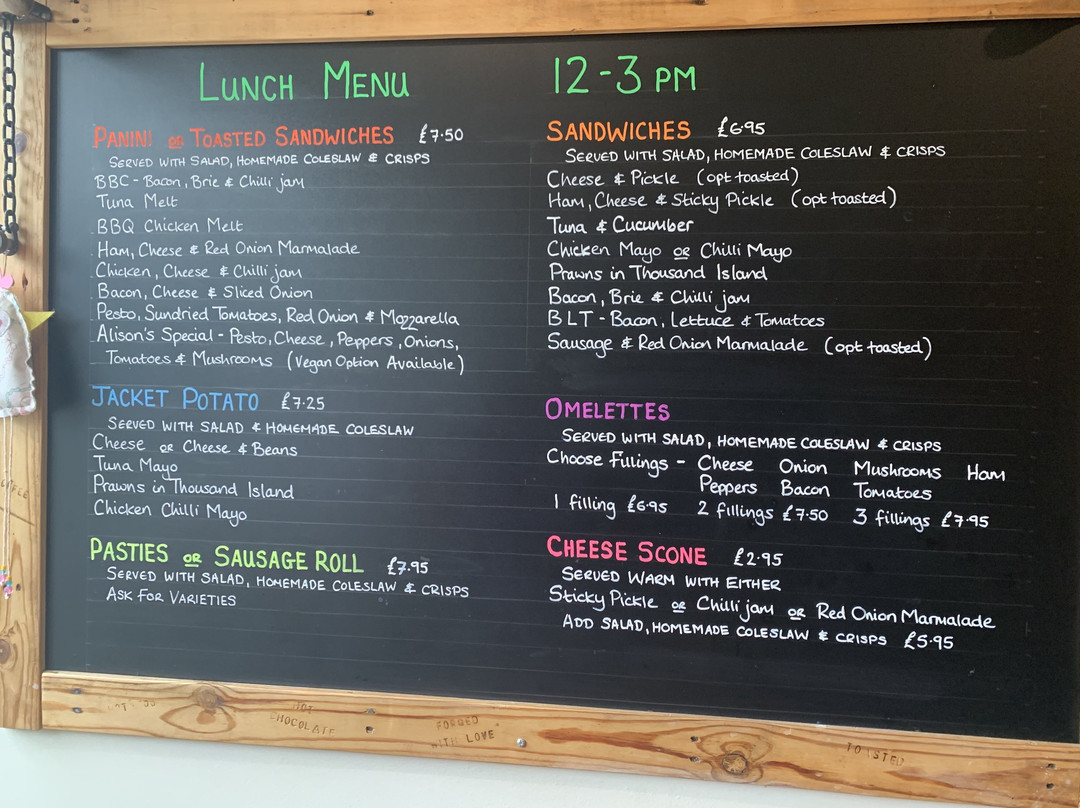 LUNCH MENU 12-3 PM
PANINI OR TOASTED SANDWICHES £7.50
SERVED WITH SALAD, HOMEMADE COLESLAW & CRISPS
BBC - Bacon, Brie & Chilli jam
Tuna Melt
BBQ Chicken Melt
Ham, Cheese & Red Onion Marmalade
Chicken, Cheese & Chilli jam
Bacon, Cheese & Sliced Onion
Pesto, Sundried Tomatoes, Red Onion & Mozzarella
Alison's Special - Pesto, Cheese, Peppers, Onions,
Tomatoes & Mushrooms (Vegan Option Available)
JACKET POTATO £7.25
SERVED WITH SALAD & HOMEMADE COLESLAW
Cheese or Cheese & Beans
Tuna Mayo
Prawns in Thousand Island
Chicken Chilli Mayo
PASTIES OR SAUSAGE ROLL £7.95
SERVED WITH SALAD, HOMEMADE COLESLAW & CRISPS
ASK FOR VARIETIES
SANDWICHES £6.95
SERVED WITH SALAD, HOMEMADE COLESLAW & CRISPS
Cheese & Pickle (opt toasted)
Ham, Cheese & Sticky Pickle (opt toasted)
Tuna & Cucumber
Chicken Mayo or Chilli Mayo
Prawns in Thousand Island
Bacon, Brie & Chilli jam
BLT - Bacon, Lettuce & Tomatoes
Sausage & Red Onion Marmalade (opt toasted)
OMELETTES
SERVED WITH SALAD, HOMEMADE COLESLAW & CRISPS
Choose Fillings - Cheese Onion Mushrooms Ham
Peppers Bacon Tomatoes
1 filling £6.95 2 fillings £7.50 3 fillings £7.95
CHEESE SCONE £2.95
SERVED WARM WITH EITHER
Sticky Pickle or Chilli jam or Red Onion Marmalade
ADD SALAD, HOMEMADE COLESLAW & CRISPS £5.95
HOT
CHOCOLATE
FORGED
WITH LOVE